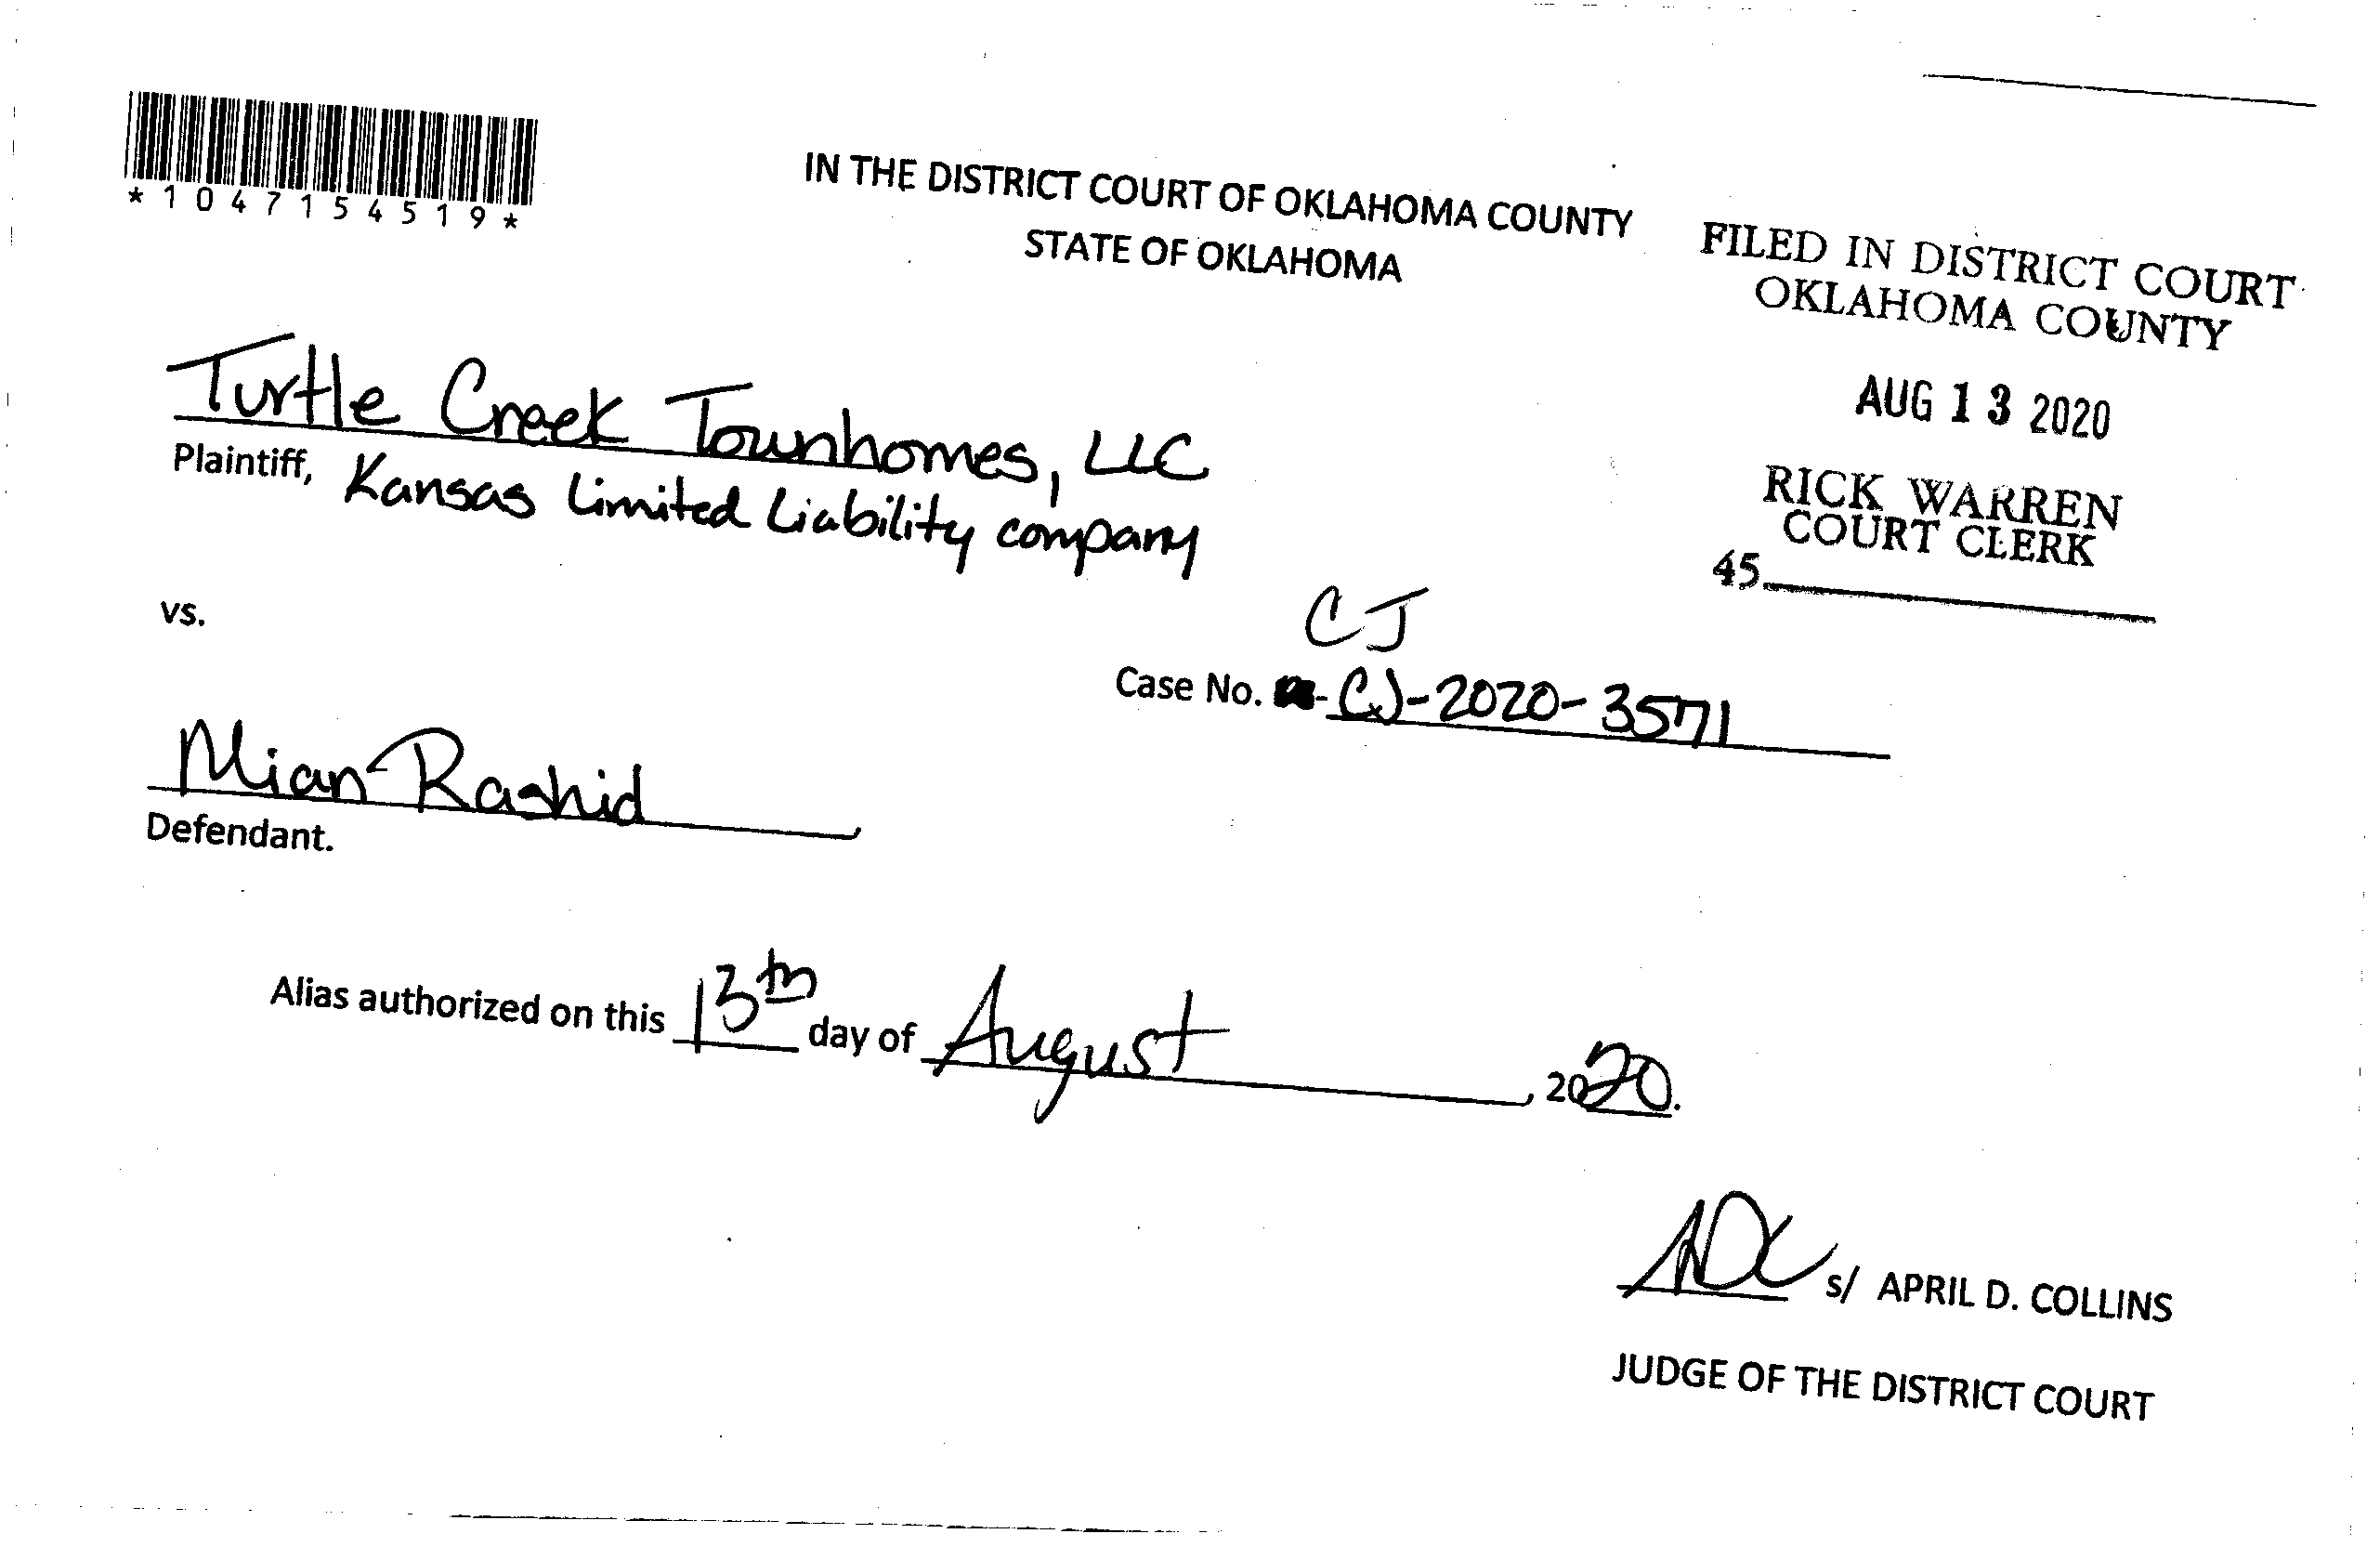 *1047154519*
IN THE DISTRICT COURT OF OKLAHOMA COUNTY
STATE OF OKLAHOMA
FILED IN DISTRICT COURT
OKLAHOMA COUNTY
AUG 13 2020
RICK WARREN
COURT CLERK
45
Turtle Creek Townhomes, LLC
Plaintiff, Kansas Limited Liability company
vs.
CJ
Case No. -CJ-2020-3571
Mian Rashid
Defendant.
Alias authorized on this 13th day of August, 2020.
ADC s/ APRIL D. COLLINS
JUDGE OF THE DISTRICT COURT